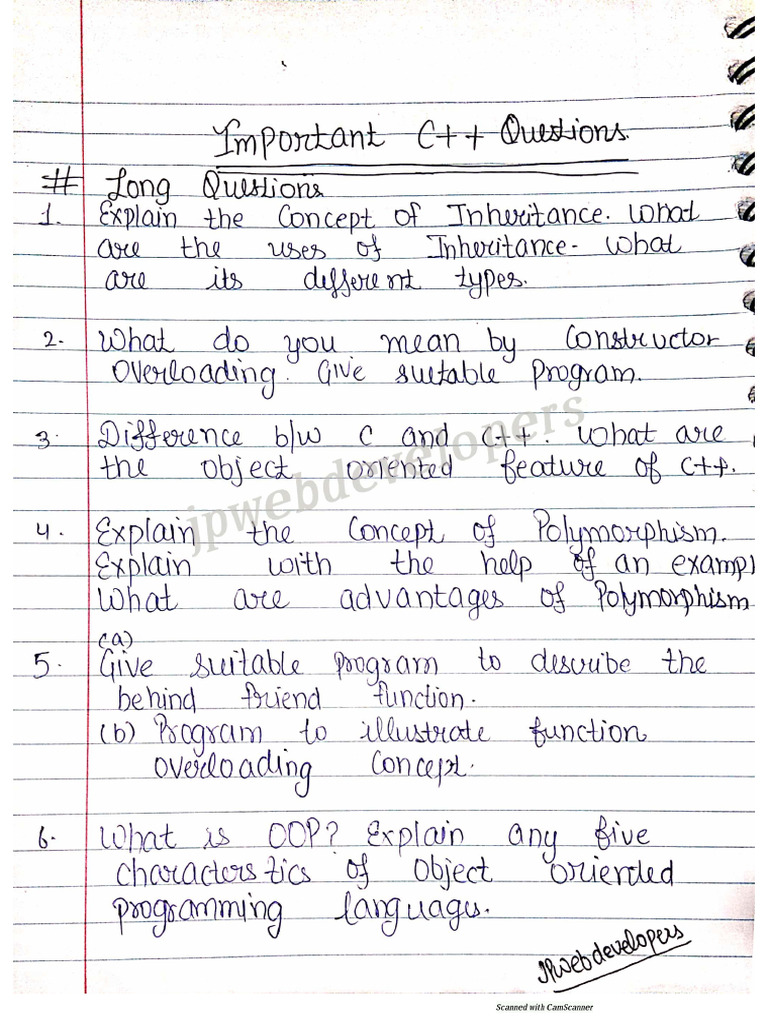 Important C++ Questions.
# Long Questions
1. Explain the Concept of Inheritance. What
are the uses of Inheritance. What
are its different types.
2. What do you mean by Constructor
Overloading. Give suitable Program.
3. Difference b/w C and C++. What are
the object oriented feature of C++.
4. Explain the Concept of Polymorphism.
Explain with the help of an exampl
What are advantages of Polymorphism
(a)
5. Give suitable program to describe the
behind friend function.
(b) Program to illustrate function
overloading concept.
6. What is OOP? Explain any five
characterstics of object oriended
programming languages.
jpwebdevelopers
JPwebdevelopers
Scanned with CamScanner